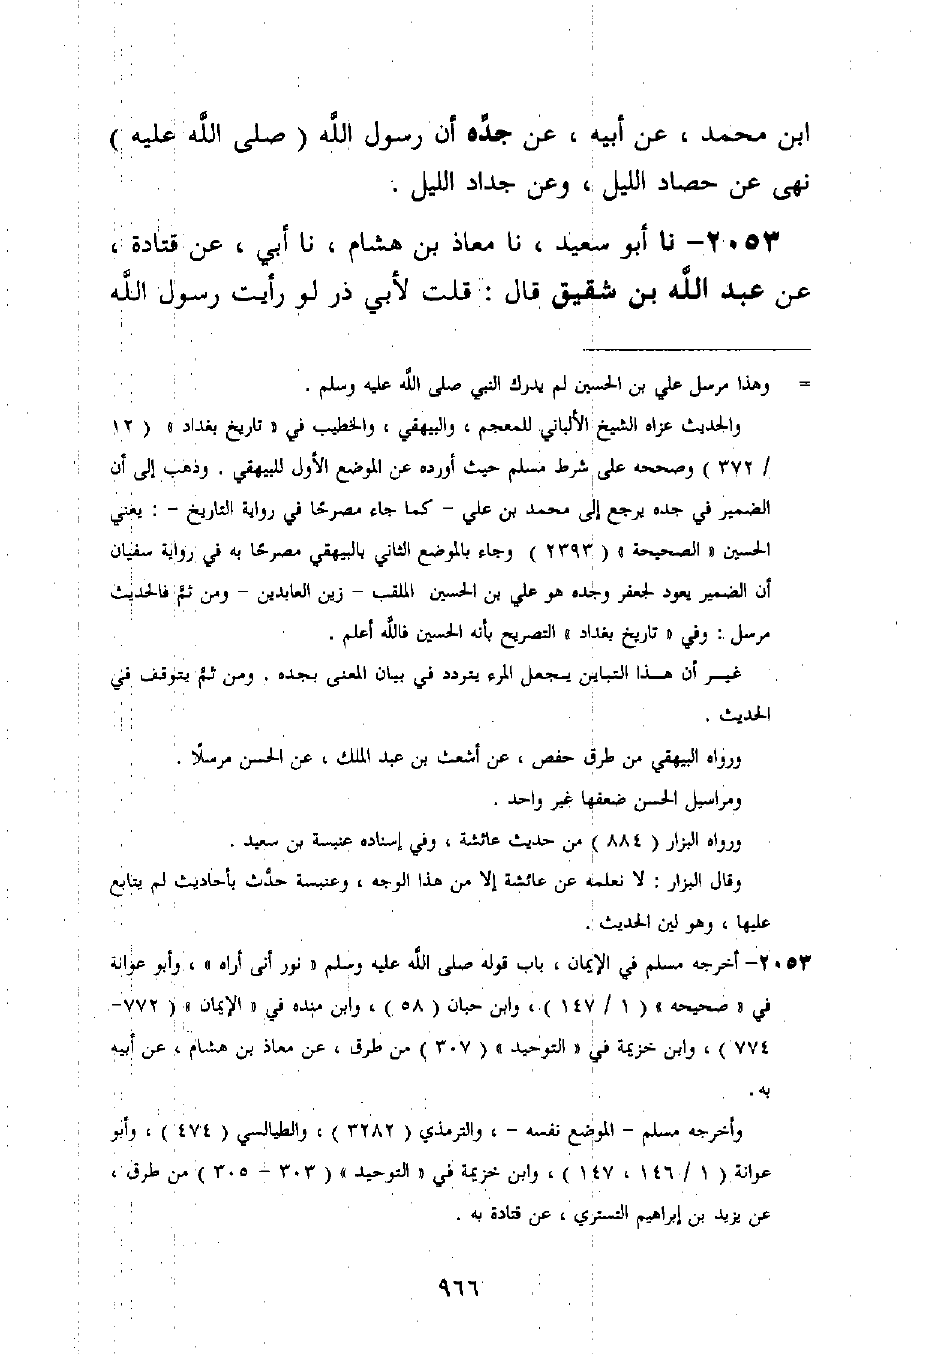 ابن محمد ، عن أبيه ، عن جدَّه أن رسول اللَّه ( صلى اللَّه عليه )
نهى عن حصاد الليل ، وعن جداد الليل .
٢٠٥٣- نا أبو سعيد ، نا معاذ بن هشام ، نا أبي ، عن قتادة ،
عن عبد اللَّه بن شقيق قال : قلت لأبي ذر لو رأيت رسول اللَّه
= وهذا مرسل علي بن الحسين لم يدرك النبي صلى اللَّه عليه وسلم .
والحديث عزاه الشيخ الألباني للمعجم ، والبيهقي ، والخطيب في « تاريخ بغداد » ( ١٢
/ ٣٧٢ ) وصححه على شرط مسلم حيث أورده عن الموضع الأول للبيهقي . وذهب إلى أن
الضمير في جده يرجع إلى محمد بن علي - كما جاء مصرحًا في رواية التاريخ - : يعني
الحسين « الصحيحة » ( ٢٣٩٣ ) وجاء بالموضع الثاني بالبيهقي مصرحًا به في رواية سفيان
أن الضمير يعود لجعفر وجده هو علي بن الحسين الملقب - زين العابدين - ومن ثمَّ فالحديث
مرسل : وفي « تاريخ بغداد » التصريح بأنه الحسين فاللَّه أعلم .
غيـر أن هـذا التباين يـجعل المرء يتردد في بيان المعنى بـجده . ومن ثـمَّ يتوقف في
الحديث .
ورواه البيهقي من طرق حفص ، عن أشعث بن عبد الملك ، عن الحسن مرسلًا .
ومراسيل الحسن ضعفها غير واحد .
ورواه البزار ( ٨٨٤ ) من حديث عائشة ، وفي إسناده عنبسة بن سعيد .
وقال البزار : لا نعلمه عن عائشة إلا من هذا الوجه ، وعنبسة حدَّث بأحاديث لم يتابع
عليها ، وهو لين الحديث .
٢٠٥٣- أخرجه مسلم في الإيمان ، باب قوله صلى اللَّه عليه وسلم « نور أنى أراه » ، وأبو عوانة
في « صحيحه » ( ١ / ١٤٧ ) ، وابن حبان ( ٥٨ ) ، وابن منده في « الإيمان » ( ٧٧٢-
٧٧٤ ) ، وابن خزيمة في « التوحيد » ( ٣٠٧ ) من طرق ، عن معاذ بن هشام ، عن أبيه
به .
وأخرجه مسلم - الموضع نفسه - ، والترمذي ( ٣٢٨٢ ) ، والطيالسي ( ٤٧٤ ) ، وأبو
عوانة ( ١ / ١٤٦ ، ١٤٧ ) ، وابن خزيمة في « التوحيد » ( ٣٠٣ - ٣٠٥ ) من طرق ،
عن يزيد بن إبراهيم التستري ، عن قتادة به .
٩٦٦